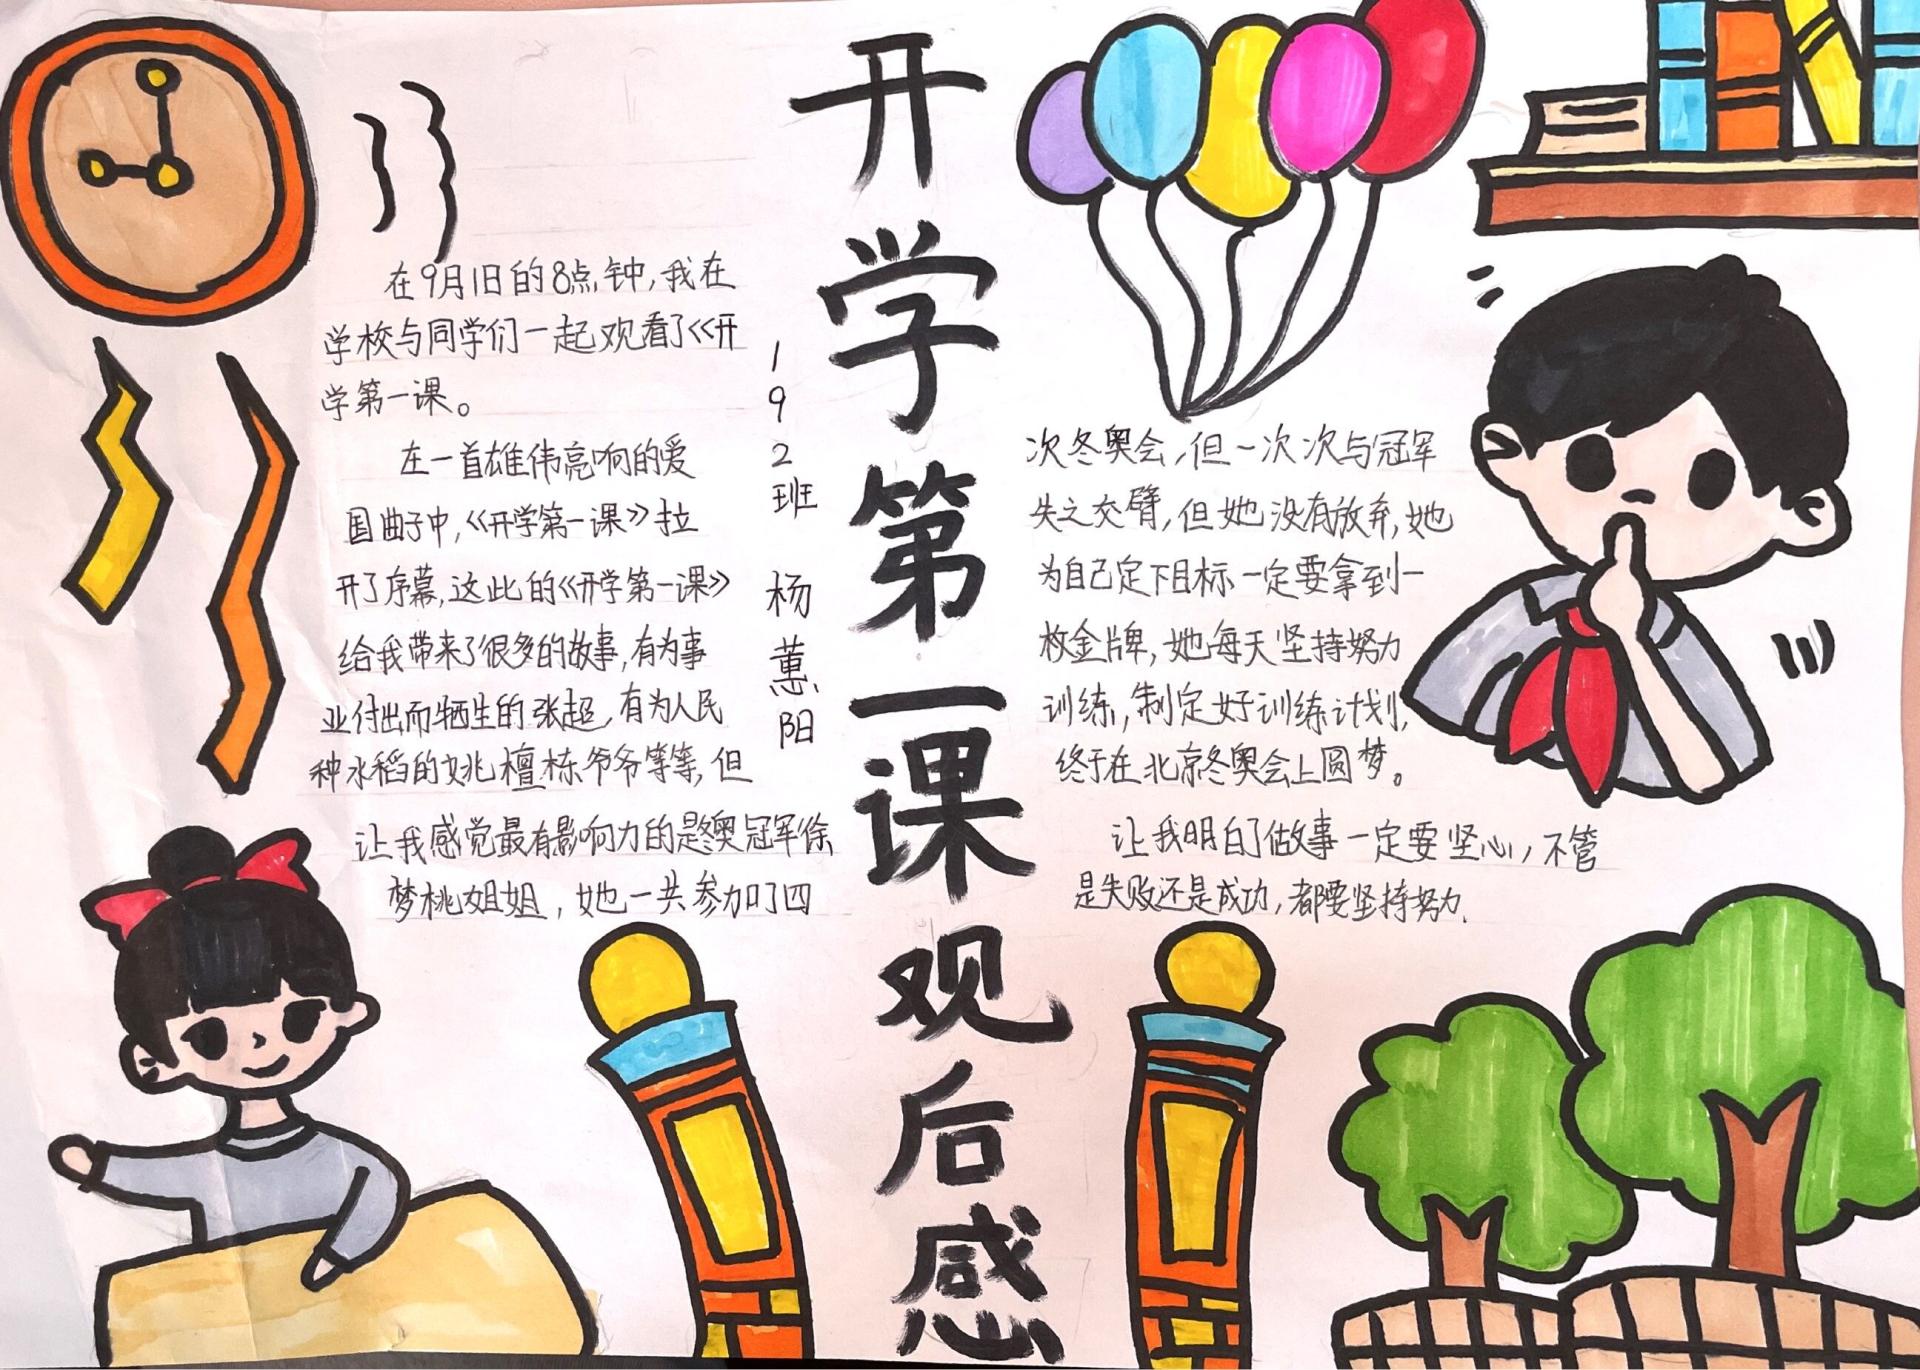 开学第一课观后感
192班 杨蕙阳
在9月1日的8点钟,我在
学校与同学们一起观看了《开
学第一课。
在一首雄伟亮响的爱
国曲子中,《开学第一课》拉
开了序幕,这此的《开学第一课》
给我带来了很多的故事,有为事
业付出而牺牲的张超,有为人民
种水稻的姚檀栋爷爷等等,但
让我感觉最有影响力的是冬奥冠军徐
梦桃姐姐,她一共参加了四
次冬奥会,但一次次与冠军
失之交臂,但她没有放弃,她
为自己定下目标一定要拿到一
枚金牌,她每天坚持努力
训练,制定好训练计划,
终于在北京冬奥会上圆梦。
让我明白了做事一定要坚心,不管
是失败还是成功,都要坚持努力.